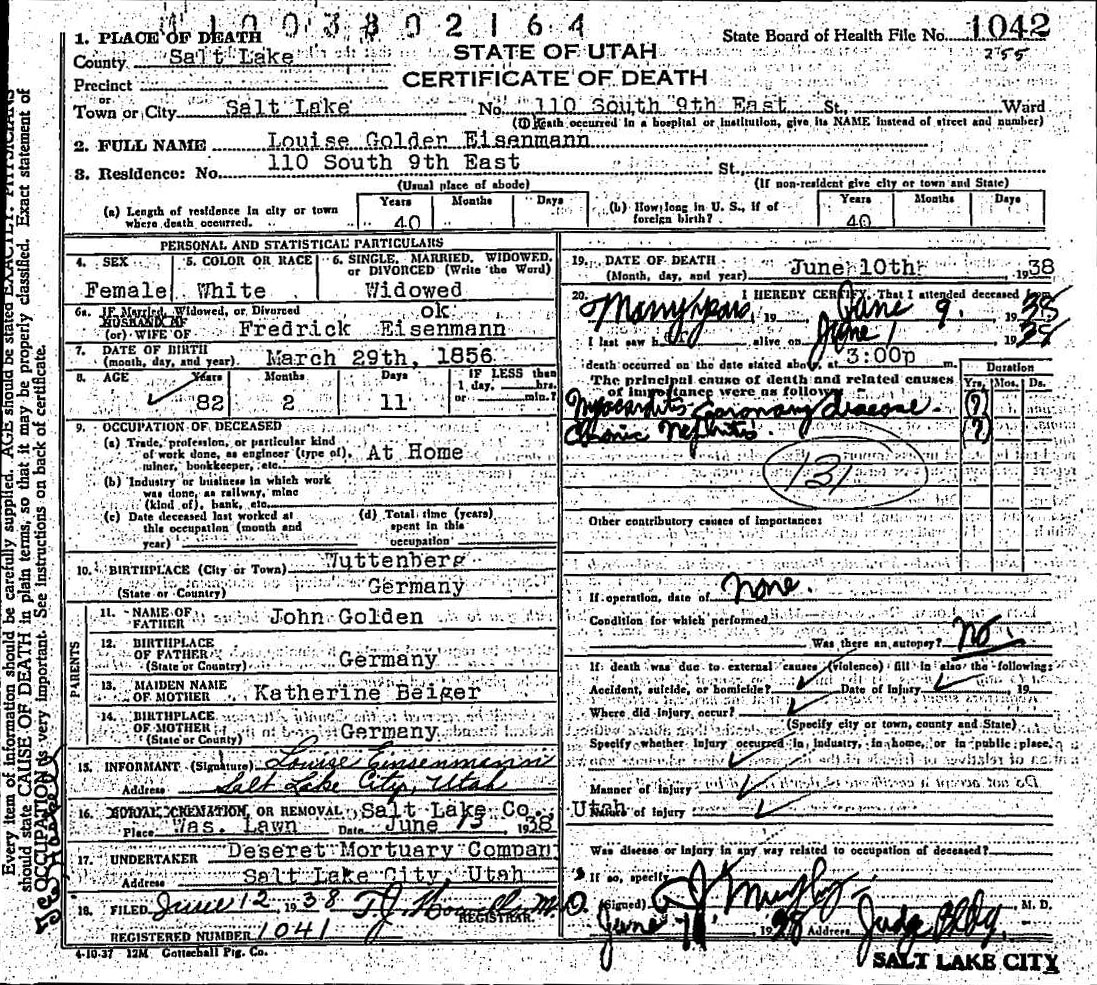 41003802164
1. PLACE OF DEATH
State Board of Health File No. 1042
255
County Salt Lake
STATE OF UTAH
CERTIFICATE OF DEATH
Precinct
or
Town or City Salt Lake No. 110 South 9th East St. Ward
death occurred in a hospital or institution, give its NAME instead of street and number)
2. FULL NAME Louise Golder Eisenmann
3. Residence: No. 110 South 9th East St.
(Usual place of abode) (If non-resident give city or town and State)
(a) Length of residence in city or town where death occurred.
Years Months Days
40
(b) How long in U. S., if of foreign birth?
Years Months Days
40
PERSONAL AND STATISTICAL PARTICULARS
4. SEX
Female
5. COLOR OR RACE
White
6. SINGLE, MARRIED, WIDOWED, or DIVORCED (Write the Word)
Widowed
6a. If Married, Widowed, or Divorced
HUSBAND OF
(or) WIFE OF Fredrick Eisenmann
ok
7. DATE OF BIRTH
(month, day, and year) March 29th, 1856
8. AGE Years Months Days
82 2 11
IF LESS than
1 day, hrs.
or min.?
9. OCCUPATION OF DECEASED
(a) Trade, profession, or particular kind
of work done, as engineer (type of),
miner, bookkeeper, etc. At Home
(b) Industry or business in which work
was done, as railway, mine
(kind of), bank, etc.
(c) Date deceased last worked at
this occupation (month and
year)
(d) Total time (years)
spent in this
occupation
10. BIRTHPLACE (City or Town) Wuttenberg
(State or Country) Germany
PARENTS
11. NAME OF FATHER John Golden
12. BIRTHPLACE OF FATHER
(State or Country) Germany
13. MAIDEN NAME OF MOTHER Katherine Baiger
14. BIRTHPLACE OF MOTHER
(State or County) Germany
15. INFORMANT (Signature) Louise Einsenmann
Address Salt Lake City, Utah
16. BURIAL, CREMATION, OR REMOVAL Salt Lake Co., Utah
Place Was. Lawn Date June 13 1938
17. UNDERTAKER Deseret Mortuary Compan
Address Salt Lake City, Utah
18. FILED June 12, 1938 T. J. Howells M.D.
REGISTRAR.
REGISTERED NUMBER 1041
4-10-37 12M Gottschall Ptg. Co.
19. DATE OF DEATH
(Month, day, and year) June 10th 1938
20. I HEREBY CERTIFY, That I attended deceased from
Many years, 19 June 9. 1938
I last saw h alive on June 1938
death occurred on the date stated above, at 3:00p m.
The principal cause of death and related causes
of importance were as follows:
Duration
Yrs. Mos. Ds.
Myocarditis. Coronary disease. (?)
Chronic Nephritis. (?)
131
Other contributory causes of importance:
If operation, date of none.
Condition for which performed
Was there an autopsy? no.
If death was due to external causes (violence) fill in also the following:
Accident, suicide, or homicide? Date of injury 19
Where did injury occur?
(Specify city or town, county and State)
Specify whether injury occurred in industry, in home, or in public place,
Manner of injury
Nature of injury
Was disease or injury in any way related to occupation of deceased?
If so, specify
(Signed) M. D.
June 1938 Address Judge Bldg.
SALT LAKE CITY
Every item of information should be carefully supplied. AGE should be stated EXACTLY. PHYSICIANS
should state CAUSE OF DEATH in plain terms, so that it may be properly classified. Exact statement of
OCCUPATION is very important. See instructions on back of certificate.